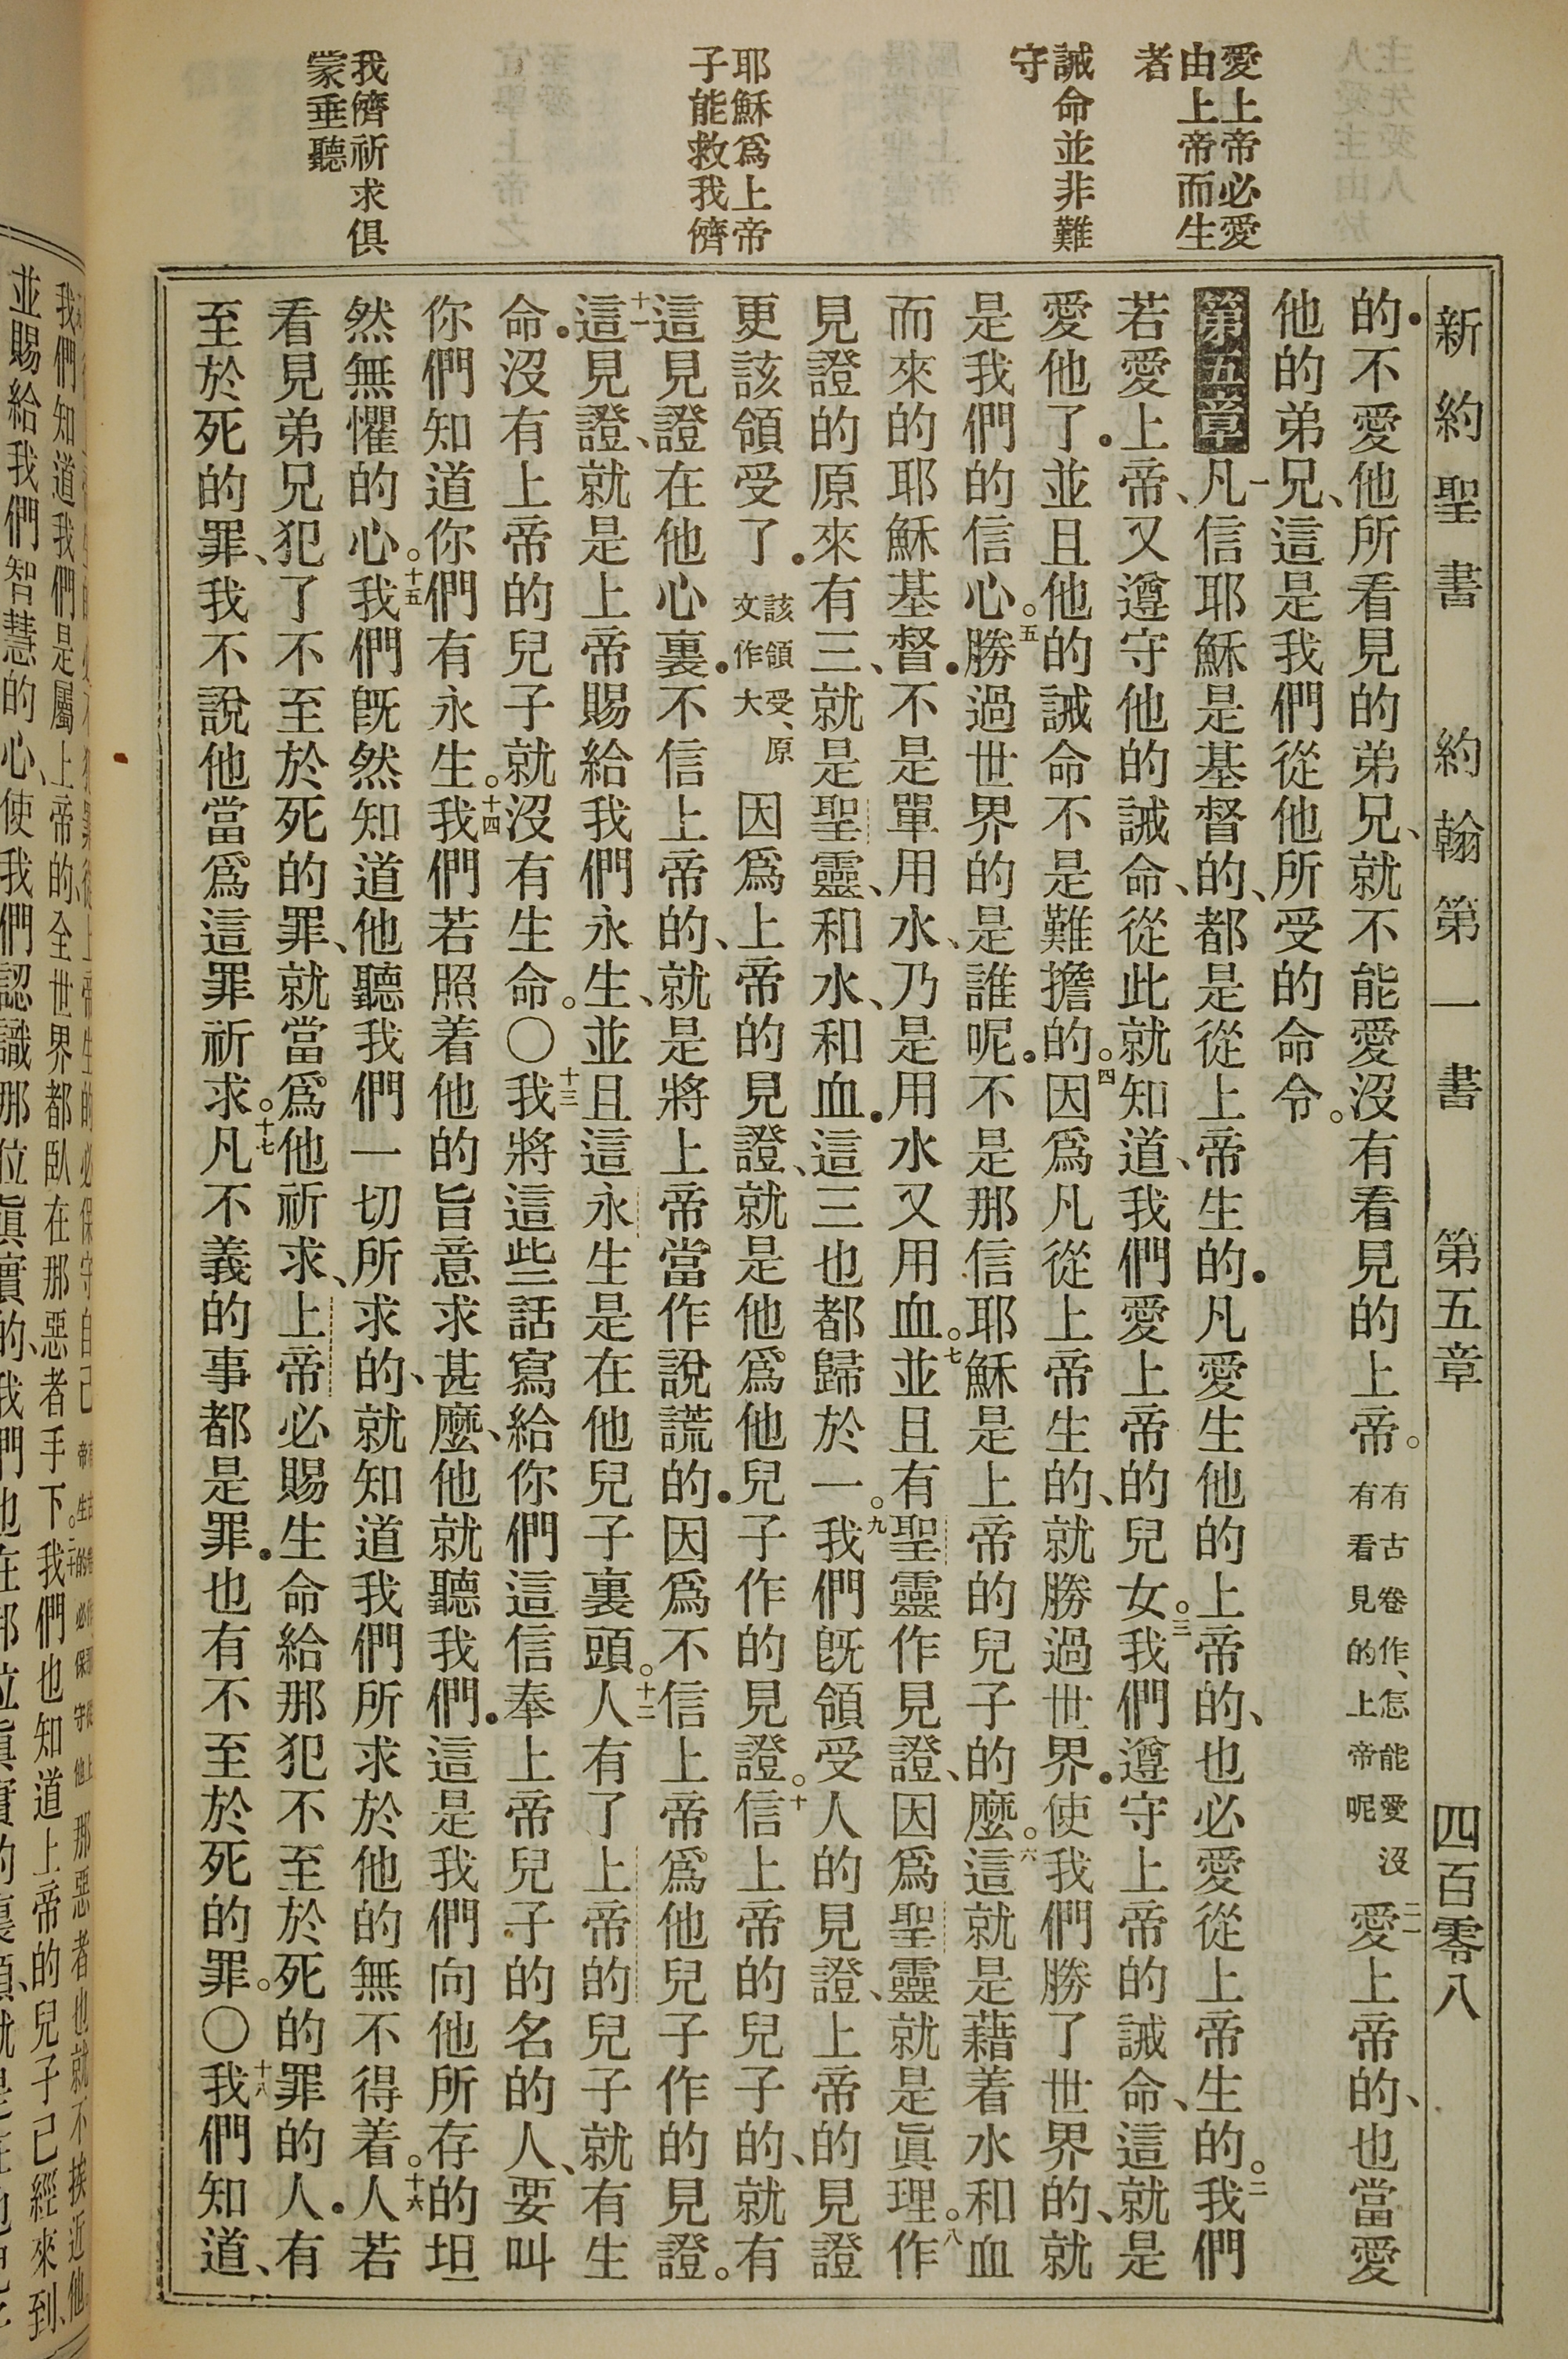 愛上帝必愛
由上帝而生
者
誡命並非難
守
耶穌爲上帝
子能救我儕
我儕祈求俱
蒙垂聽
新約聖書 約翰第一書 第五章 四百零八
的・不愛他所看見的弟兄、就不能愛沒有看見的上帝。有古卷作、怎能愛沒有看見的上帝呢二一愛上帝的、也當愛
他的弟兄、這是我們從他所受的命令。
第五章一凡信耶穌是基督的、都是從上帝生的・凡愛生他的上帝的、也必愛從上帝生的。二我們
若愛上帝、又遵守他的誡命、從此就知道、我們愛上帝的兒女。三我們遵守上帝的誡命、這就是
愛他了・並且他的誡命不是難擔的。四因爲凡從上帝生的、就勝過世界・使我們勝了世界的、就
是我們的信心。五勝過世界的是誰呢・不是那信耶穌是上帝的兒子的麼。六這就是藉着水和血
而來的耶穌基督・不是單用水、乃是用水又用血。七並且有聖靈作見證、因爲聖靈就是眞理。八作
見證的原來有三、就是聖靈、和水、和血・這三也都歸於一。九我們旣領受人的見證、上帝的見證
更該領受了・該領受、原文作大因爲上帝的見證、就是他爲他兒子作的見證。十信上帝的兒子的、就有
這見證在他心裏・不信上帝的、就是將上帝當作說謊的・因爲不信上帝爲他兒子作的見證。
十一這見證、就是上帝賜給我們永生、並且這永生是在他兒子裏頭。十二人有了上帝的兒子就有生
命・沒有上帝的兒子就沒有生命。〇十三我將這些話寫給你們這信奉上帝兒子的名的人、要叫
你們知道你們有永生。十四我們若照着他的旨意求甚麼、他就聽我們・這是我們向他所存的坦
然無懼的心。十五我們旣然知道他聽我們一切所求的、就知道我們所求於他的無不得着。十六人若
看見弟兄犯了不至於死的罪、就當爲他祈求、上帝必賜生命給那犯不至於死的罪的人・有
至於死的罪、我不說他當爲這罪祈求。十七凡不義的事都是罪・也有不至於死的罪。〇十八我們知道、
我們知道我們是屬上帝的、全世界都臥在那惡者手下。二十我們也知道上帝的兒子已經來到、
並賜給我們智慧的心、使我們認識那位眞實的、我們也在那位眞實的裏頭、